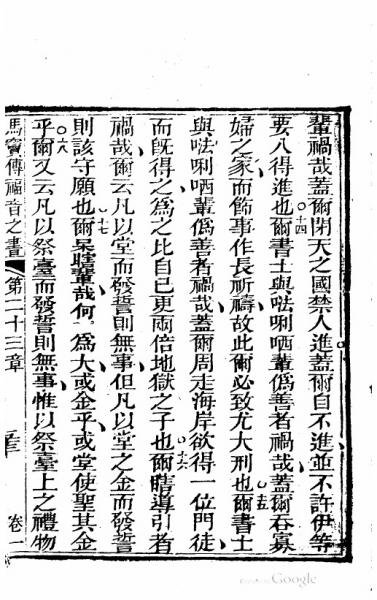 輩禍哉蓋爾閉天之國禁人進蓋爾自不進並不許伊等
要入得進也○十四爾書士與𠵽唎哂輩僞善者禍哉蓋爾吞寡
婦之家而飾事作長祈禱故此爾必致尤大刑也○十五爾書士
與𠵽唎哂輩僞善者禍哉蓋爾周走海岸欲得一位門徒
而旣得之爲之比自己更兩倍地獄之子也○十六爾瞎導引者
禍哉爾云凡以堂而發誓則無事但凡以堂之金而發誓
則該守願也○十七爾呆瞎輩哉何爲大或金乎或堂使聖其金
乎○十八爾又云凡以祭臺而發誓則無事惟以祭臺上之禮物
馬竇傳福音之書 第二十三章 卷一
Google